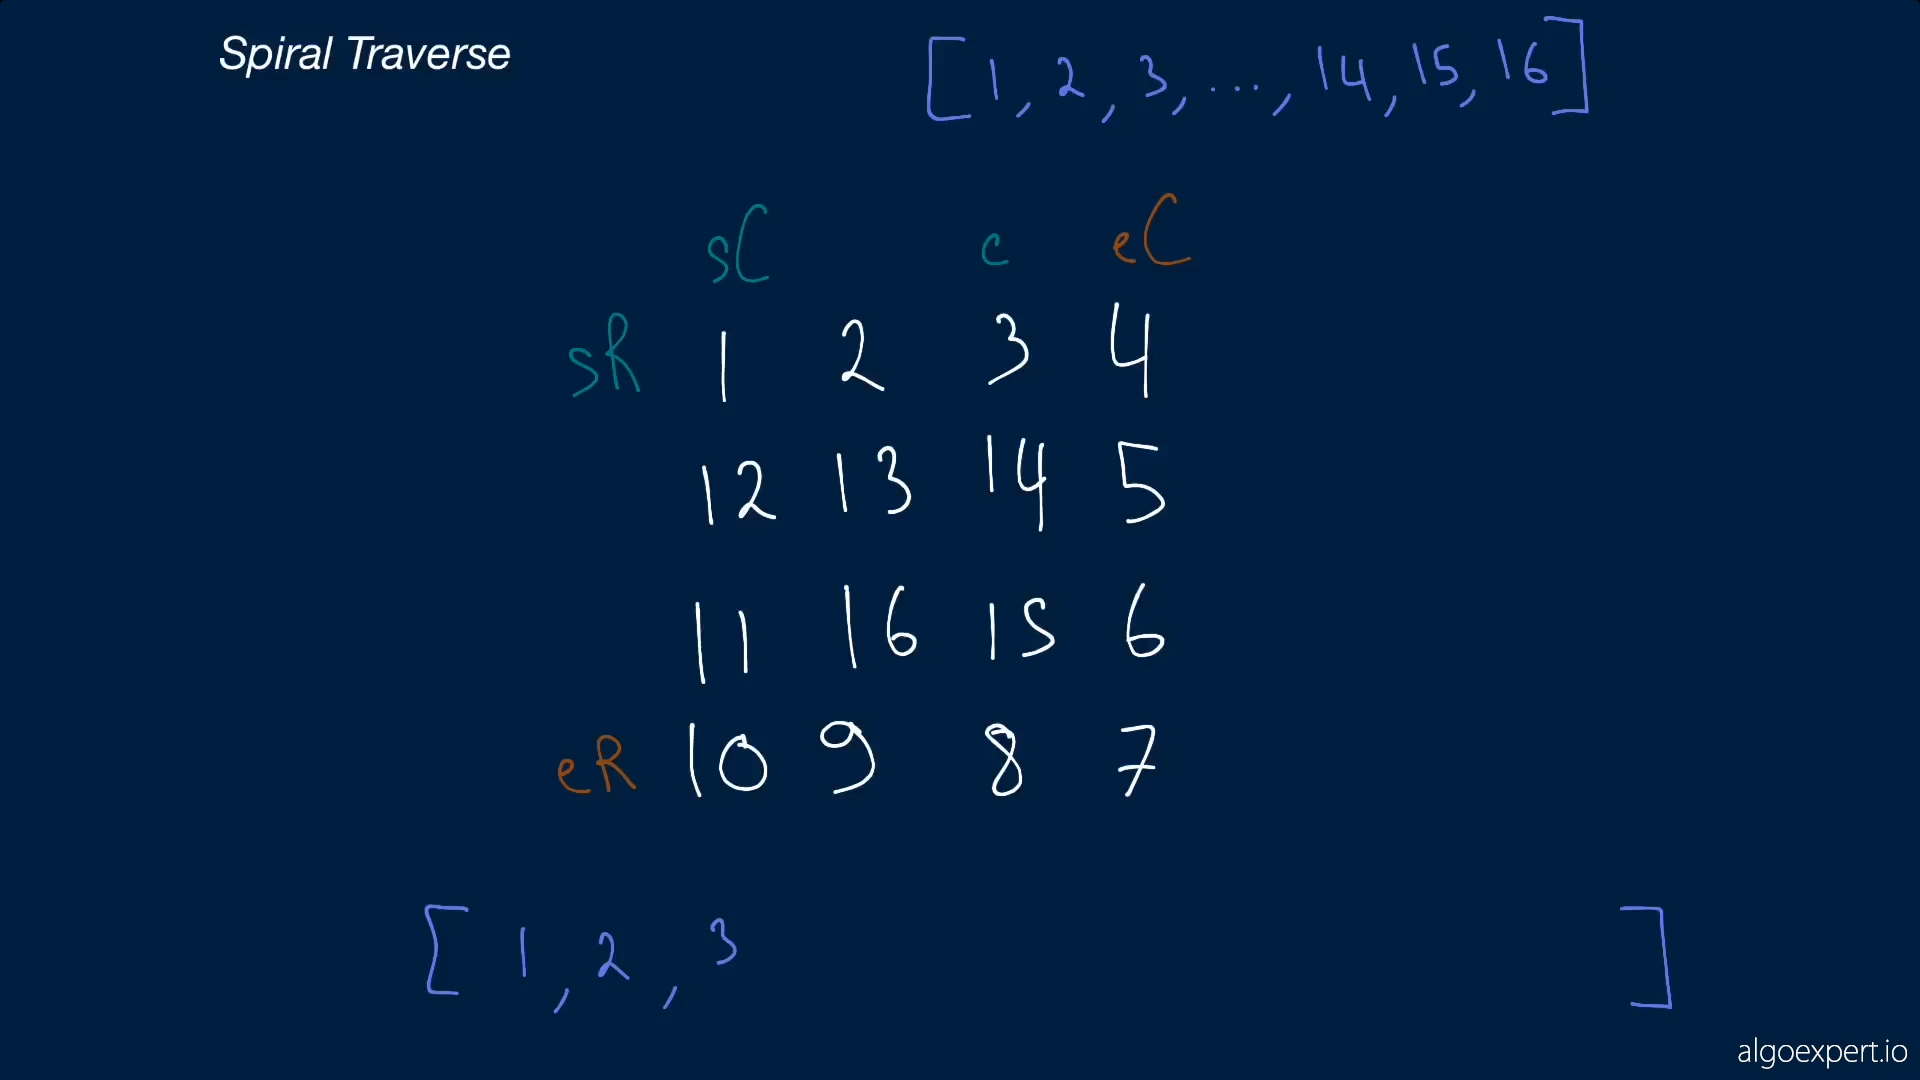 Spiral Traverse
[1, 2, 3, ..., 14, 15, 16]
sC c eC
sR 1 2 3 4
12 13 14 5
11 16 15 6
eR 10 9 8 7
[1, 2, 3 ]
algoexpert.io